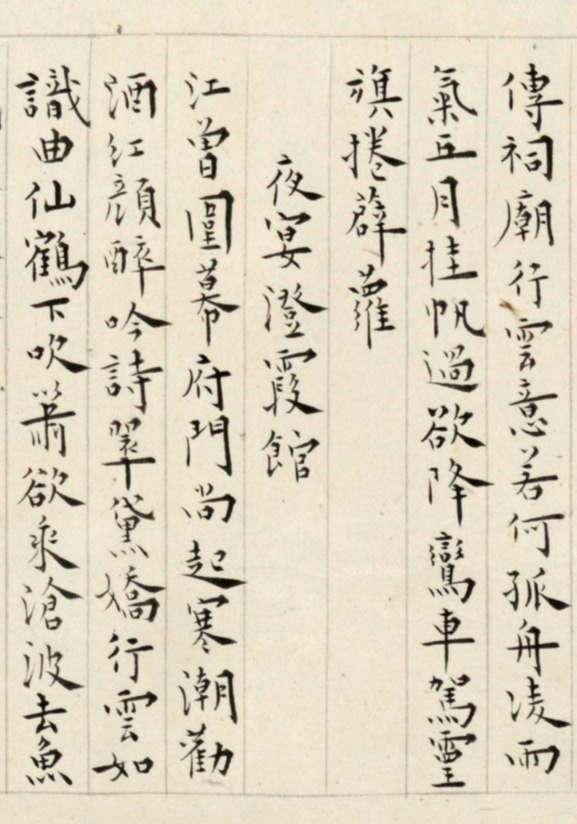 傳祠廟行雲意若何孤舟凌雨
氣五月挂帆過欲降鸞車駕靈
旗捲薜蘿
夜宴澄霞館
江曾圍幕府門尚起寒潮勸
酒紅顏醉吟詩翠黛嬌行雲如
識曲仙鶴下吹簫欲乘滄波去魚